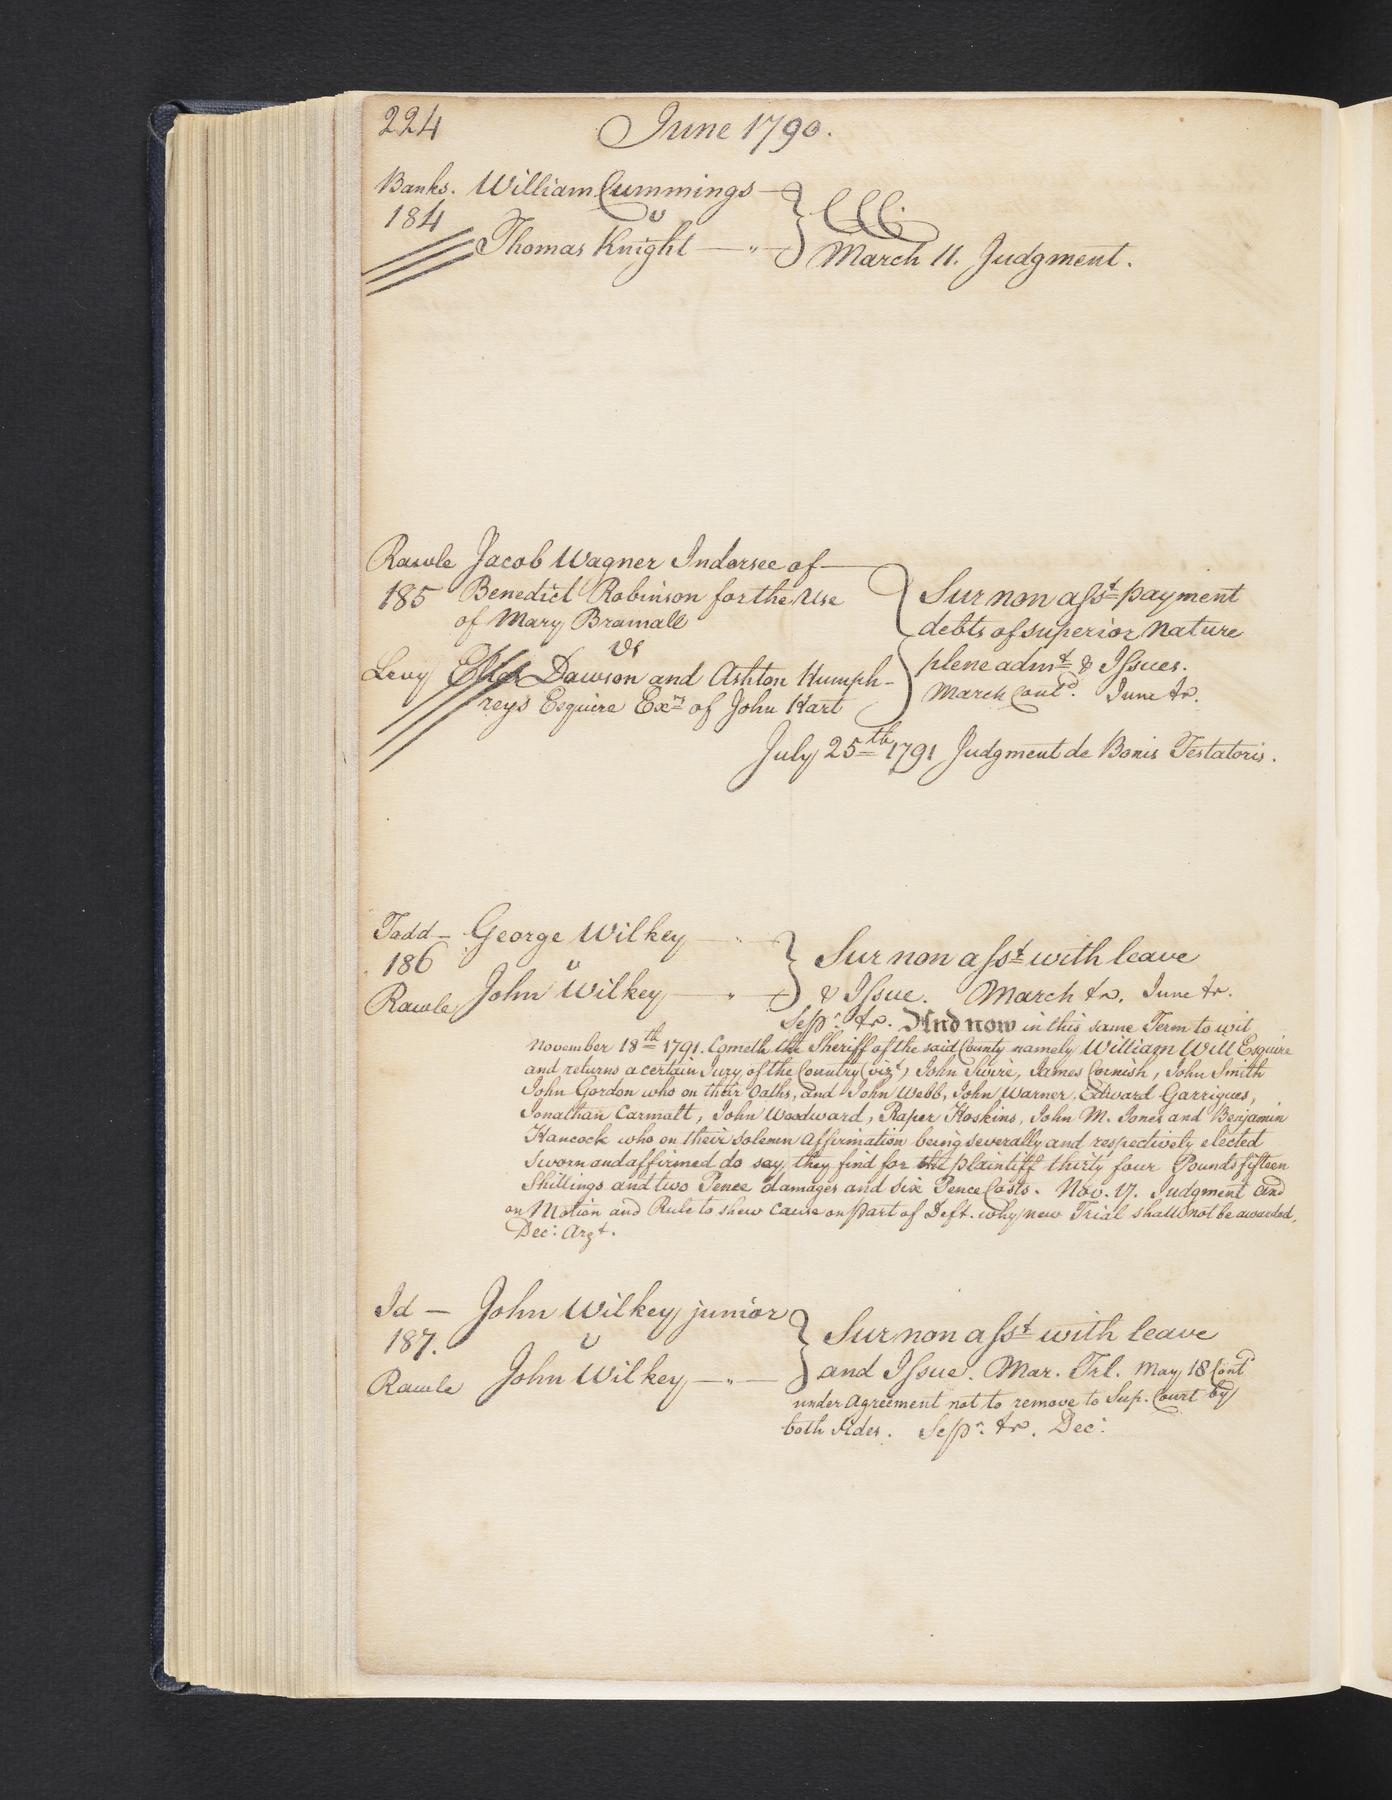 224 June 1790.
Banks. William Cummings
184 v
Thomas Knight
March 11. Judgment.
Rawle Jacob Wagner Indorsee of
185 Benedict Robinson for the Use
of Mary Bramall
vs
Levy Dawson and Ashton Humph-
reys Esquire Exrs of John Hart
Sur non asst payment
debts of superior Nature
plene admt & Issues.
March Contd. June tr.
July 25th 1791 Judgment de Bonis Testatoris.
Todd George Wilkey
186 v
Rawle John Wilkey
Sur non asst with leave
& Issue. March tr. June tr.
Sepr. tr. And now in this same Term to wit
November 18th 1791. Cometh the Sheriff of the said County namely William Will Esquire
and returns a certain Jury of the Country (vizt) John Swire, James Cornish, John Smith
John Gordon who on their Oaths, and John Webb, John Warner, Edward Garrigues,
Jonathan Carmalt, John Woodward, Raper Hoskins, John M. Jones and Benjamin
Hancock who on their solemn affirmation being severally and respectively elected
sworn and affirmed do say, they find for the plaintiff thirty four Pounds fifteen
Shillings and two Pence damages and six Pence Costs. Nov. 17. Judgment and
on Motion and Rule to shew cause on part of Deft. why new Trial shall not be awarded,
Dec: Argt.
Id — John Wilkey junior
187. v
Rawle John Wilkey
Sur non asst with leave
and Issue. Mar. Trl. May 18 Contd
under Agreement not to remove to Sup. Court by
both sides. Sepr. tr. Dec: